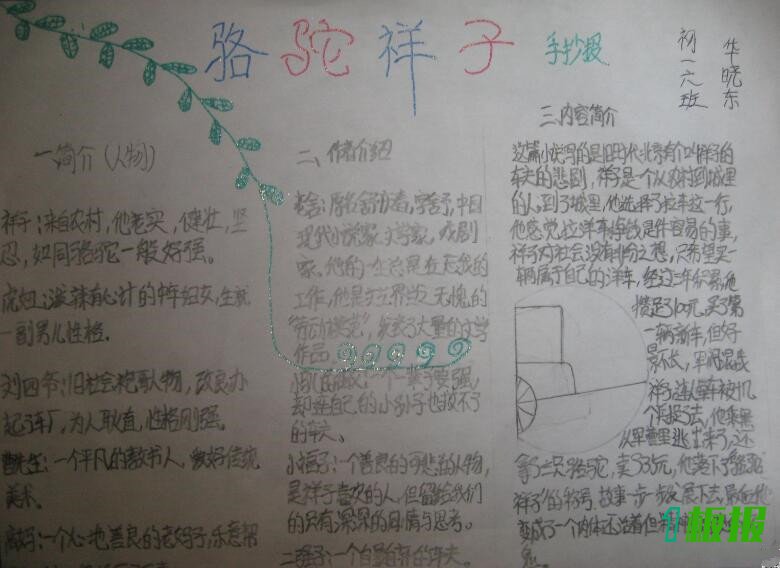 骆驼祥子 手抄报
初一六班
华晓东
一、简介(人物)
祥子:来自农村,他老实,健壮,坚
忍,如同骆驼一般好强。
虎妞:泼辣有心计的中年妇女,生就
一副男儿性格。
刘四爷:旧社会袍哥人物,改良办
起了车厂,为人耿直,性格刚强。
曹先生:一个平凡的教书人,爱好传统
美术。
高妈:一个心地善良的老妈子,乐意帮
二、作者介绍
老舍:原名舒庆春,字舍予,中国
现代小说家、文学家,戏剧
家。他的一生总是在忘我的
工作,他是文艺界当之无愧的
“劳动模范”,发表了大量的文学
作品。
一个一辈子要强,
却连自己的小孙子也救不了
的车夫。
小福子:一个善良的可悲的人物,
是祥子喜欢的人,但留给我们
的只有深深的同情与思考。
二强子:一个自暴自弃的车夫。
三、内容简介
这篇小说写的是旧时代北京有个叫祥子的
车夫的悲剧,祥子是个从农村到城里
的人,到了城里,他选择了拉车这一行,
他感觉拉洋车挣钱是件容易的事,
祥子对社会没有非份之想,只希望买
一辆属于自己的洋车,经过三年积累,他
攒足了100元,买了第
一辆新车,但好
景不长,
祥子连人带车被抓
他乘黑
从军营里逃出来了,还
拿了三只骆驼,卖了35元,他落下了“骆驼
祥子”的称号,故事一步步发展下去,最后他
变成了一个肉体还活着但精神
鬼。
板报